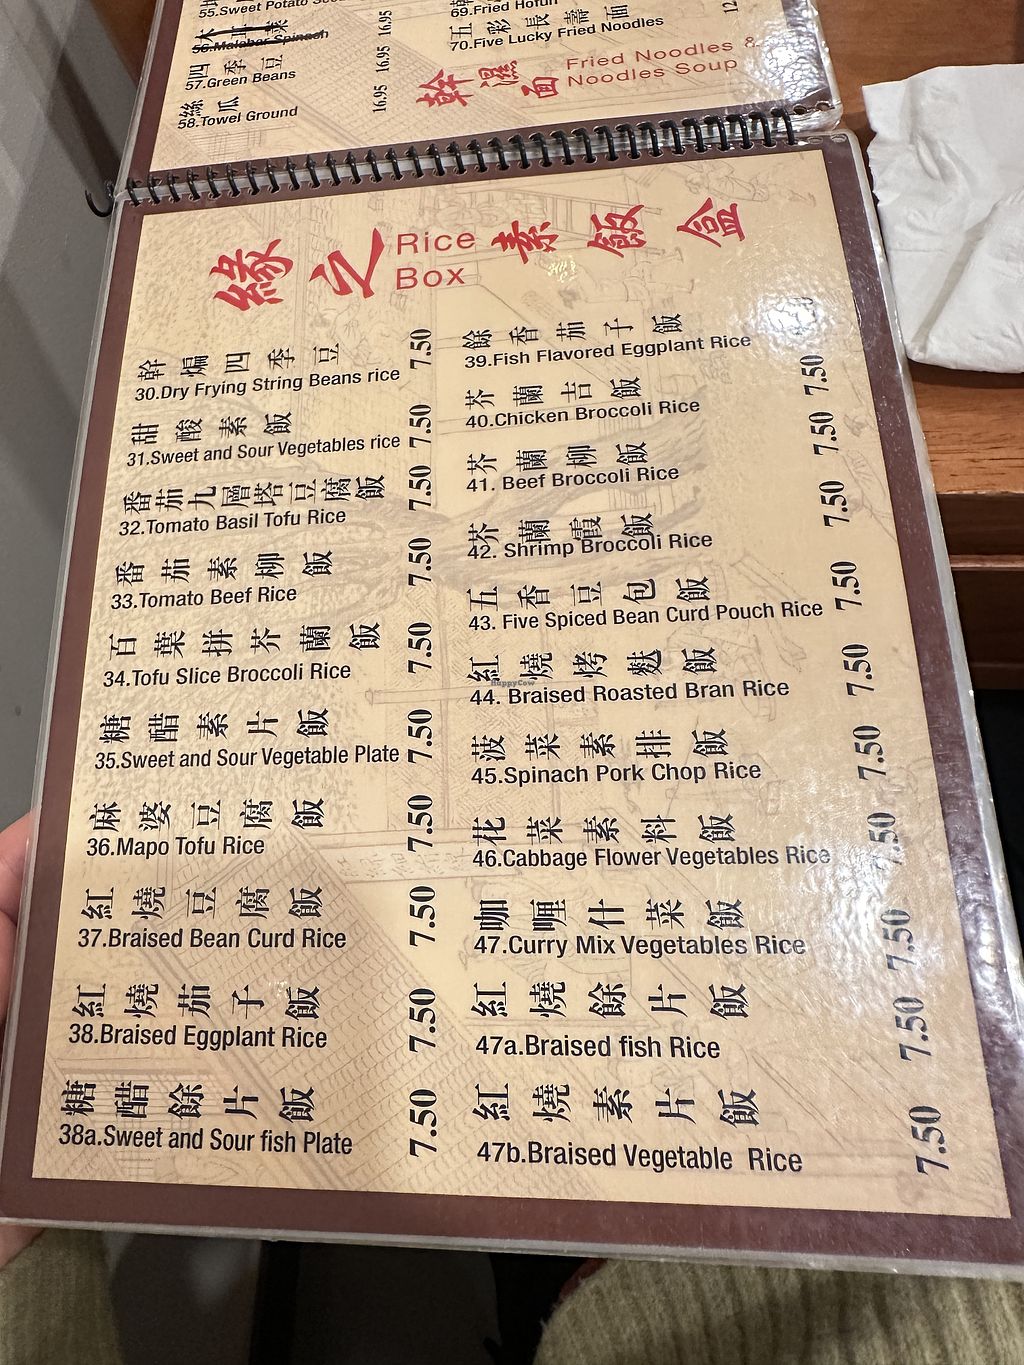 55.Sweet Potato
56.Malabar Spinach
16.95
四季豆
57.Green Beans
16.95
絲瓜
58.Towel Ground
16.95
69.Fried Hofun
五彩長壽面
70.Five Lucky Fried Noodles
12
幹濕面
Fried Noodles &
Noodles Soup
緣之素飯盒
Rice
Box
幹煸四季豆
30.Dry Frying String Beans rice
7.50
甜酸素飯
31.Sweet and Sour Vegetables rice
7.50
番茄九層塔豆腐飯
32.Tomato Basil Tofu Rice
7.50
番茄素柳飯
33.Tomato Beef Rice
7.50
百葉拼芥蘭飯
34.Tofu Slice Broccoli Rice
7.50
糖醋素片飯
35.Sweet and Sour Vegetable Plate
7.50
麻婆豆腐飯
36.Mapo Tofu Rice
7.50
紅燒豆腐飯
37.Braised Bean Curd Rice
7.50
紅燒茄子飯
38.Braised Eggplant Rice
7.50
糖醋餘片飯
38a.Sweet and Sour fish Plate
7.50
餘香茄子飯
39.Fish Flavored Eggplant Rice
芥蘭吉飯
40.Chicken Broccoli Rice
7.50
芥蘭柳飯
41. Beef Broccoli Rice
7.50
芥蘭霞飯
42. Shrimp Broccoli Rice
7.50
五香豆包飯
43. Five Spiced Bean Curd Pouch Rice
7.50
紅燒烤麩飯
44. Braised Roasted Bran Rice
7.50
菠菜素排飯
45.Spinach Pork Chop Rice
7.50
花菜素料飯
46.Cabbage Flower Vegetables Rice
7.50
咖喱什菜飯
47.Curry Mix Vegetables Rice
7.50
紅燒餘片飯
47a.Braised fish Rice
7.50
紅燒素片飯
47b.Braised Vegetable Rice
7.50
HappyCow